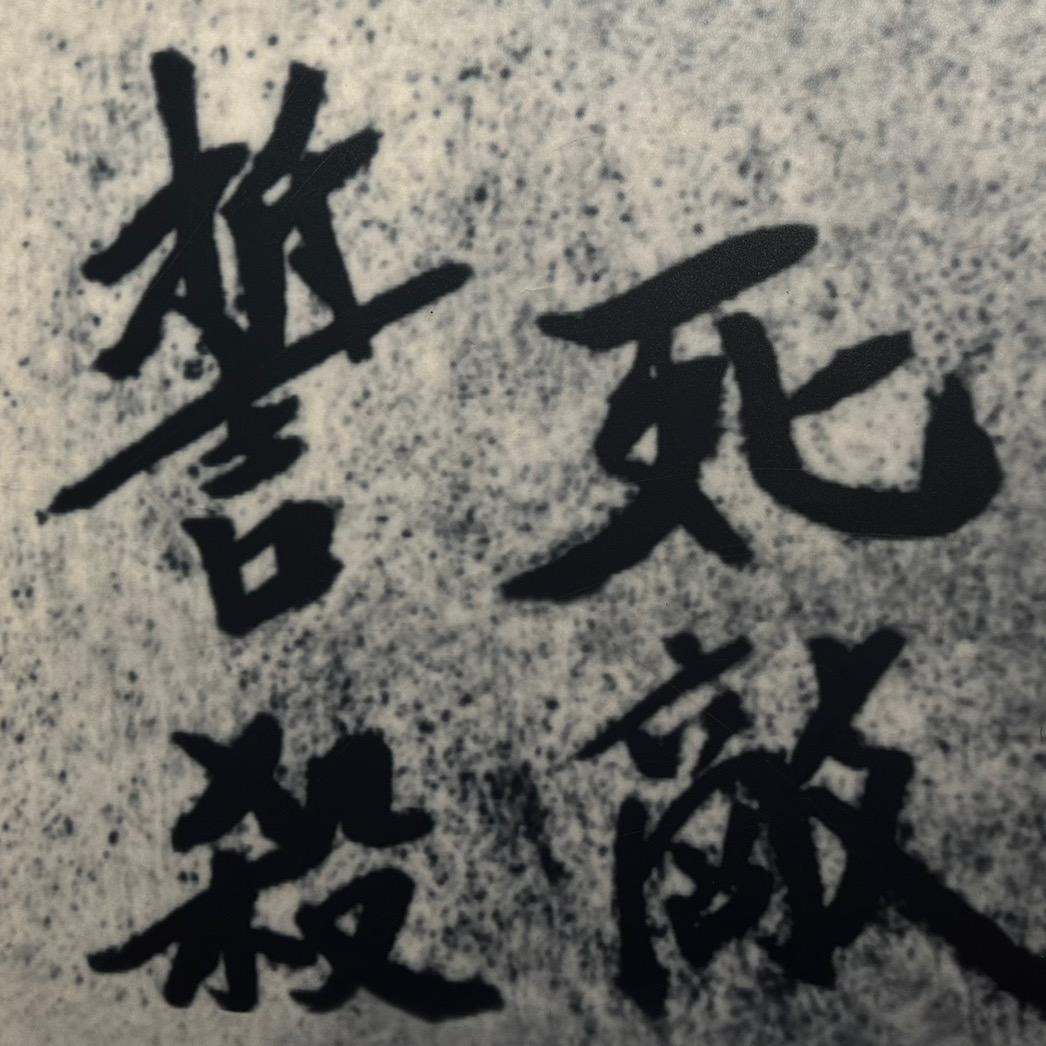 死敵
誓殺